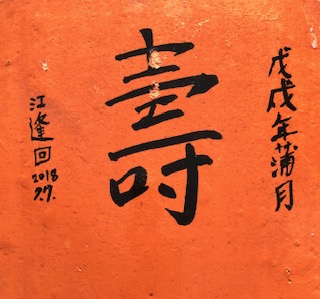 戊戌年蒲月
壽
江逢回
2018
7.7.